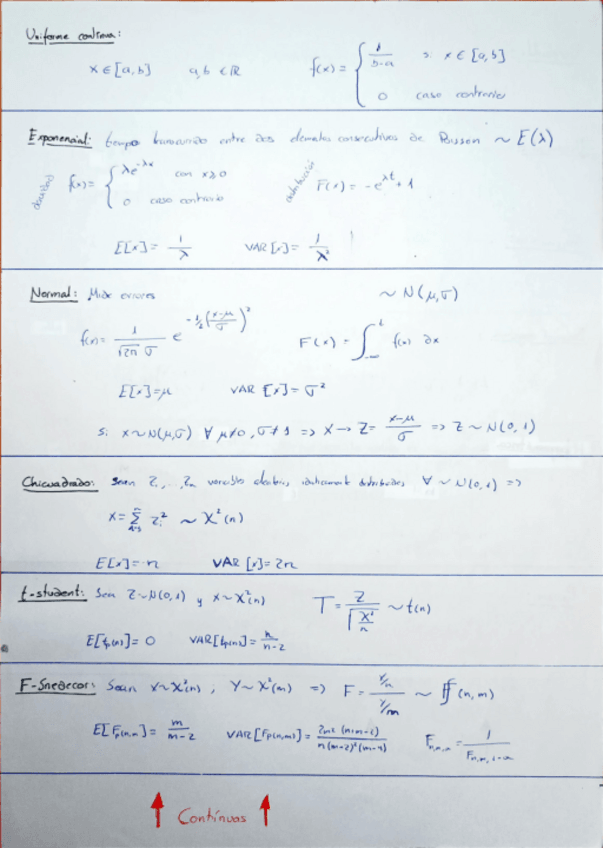 Uniforme continua:
x ∈ [a,b]   a,b ∈ ℝ   f(x) = { 1/(b-a) si x ∈ [a,b]
0 caso contrario
Exponencial: tiempo transcurrido entre dos elementos consecutivos de Poisson ~ E(λ)
densidad f(x) = { λe^-λx con x≥0   distribución F(x) = -e^λt + 1
0 caso contrario
E[x] = 1/λ   VAR[x] = 1/λ²
Normal: Mide errores   ~ N(μ,σ)
f(x) = 1/(√2π σ) e^-½((x-μ)/σ)²   F(x) = ∫_-∞^t f(x) ∂x
E[x]=μ   VAR[x]=σ²
Si x~N(μ,σ) ∀ μ≠0, σ≠1 => X → Z = (x-μ)/σ => Z ~ N(0,1)
Chicuadrado: Sean Z₁,..., Zn variables aleatorias identicament distribuidas ∀ ~ N(0,1) =>
X = Σ Zi² ~ X²(n)
E[x] = n   VAR[x] = 2n
t-student: Sea Z~N(0,1) y X~X²(n)   T = Z/√(X²/n) ~ t(n)
E[tp(n)] = 0   VAR[tp(n)] = n/(n-2)
F-Snedecor: Sean X~X²(n), Y~X²(m) => F = (X/n)/(Y/m) ~ F(n,m)
E[Fp(n,m)] = m/(m-2)   VAR[Fp(n,m)] = 2m²(n+m-2)/(n(m-2)²(m-4))   Fn,m,α = 1/Fn,m,1-α
↑ Contínuas ↑